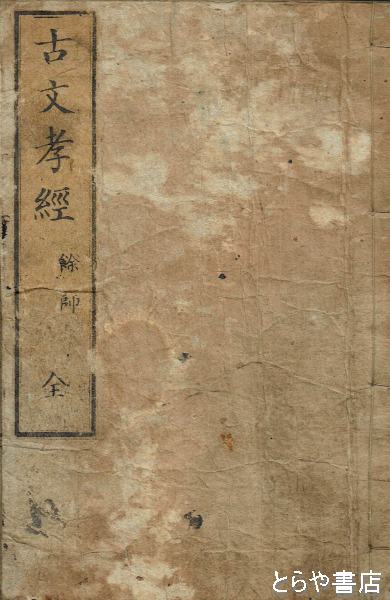 古文孝經 餘師 全
とらや書店